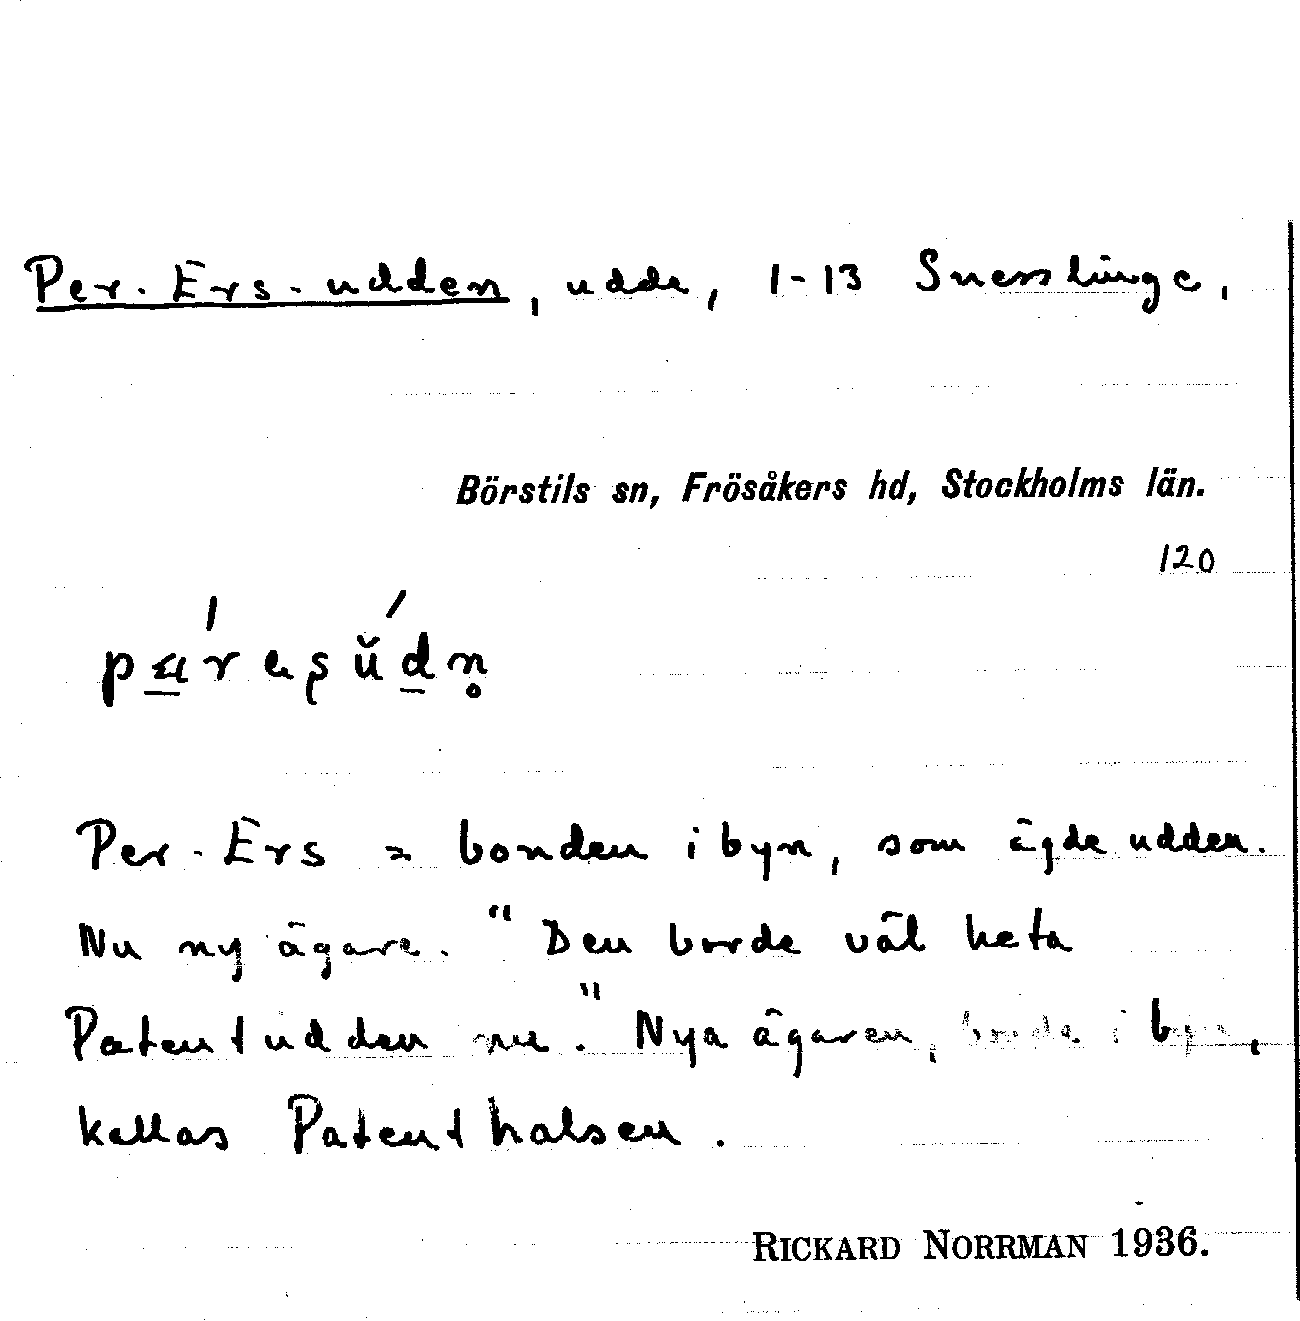 Per-Ers-udden, udde, 1-13 Snesslinge,
Börstils sn, Frösåkers hd, Stockholms län.
120
Per-Ers = bonden i byn, som ägde udden.
Nu ny ägare. "Den borde väl heta
Patentudden nu." Nya ägaren, i byn,
kallas Patenthalsen.
RICKARD NORRMAN 1936.